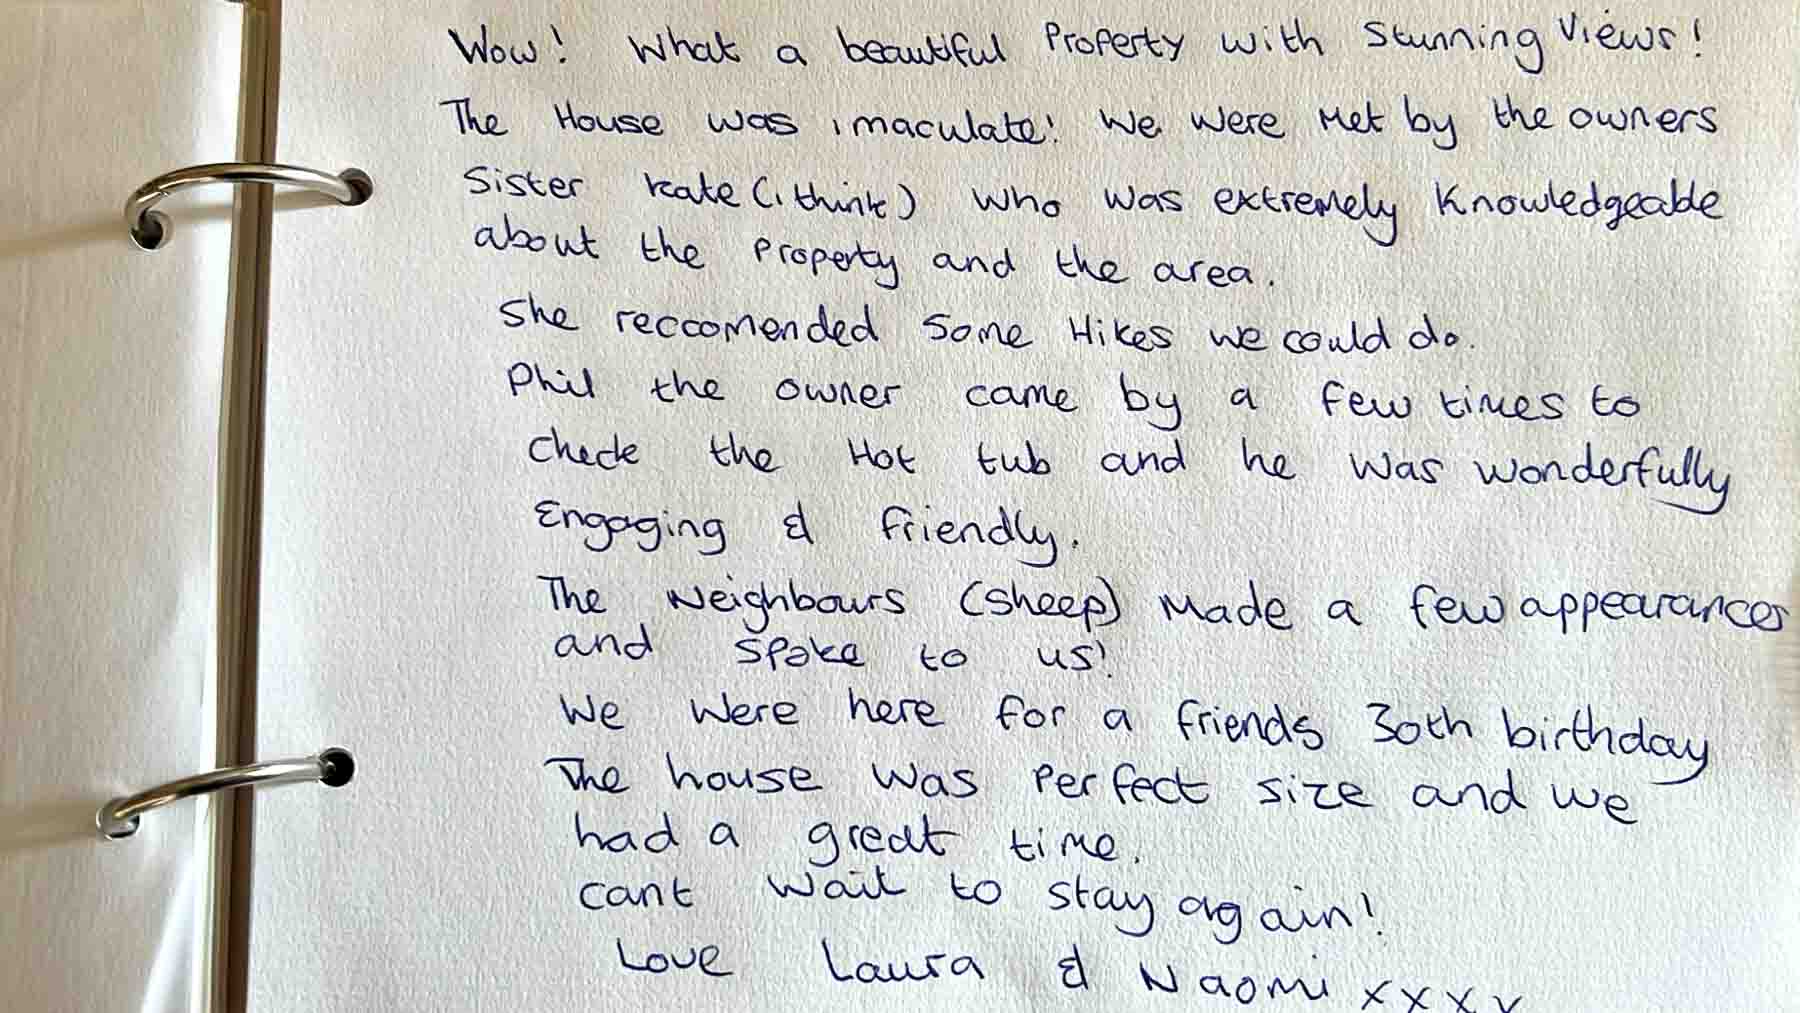 Wow! What a beautiful Property with Stunning Views!
The House was imaculate! We were Met by the owners
Sister Kate (i think) who was extremely Knowledgeable
about the Property and the area.
She reccomended Some Hikes we could do.
Phil the owner came by a few times to
Check the Hot tub and he was wonderfully
Engaging & friendly.
The Neighbours (sheep) Made a few appearances
and spoke to us!
We were here for a friends 30th birthday
The house was Perfect size and we
had a great time.
cant wait to stay again!
Love Laura & Naomi xxxx